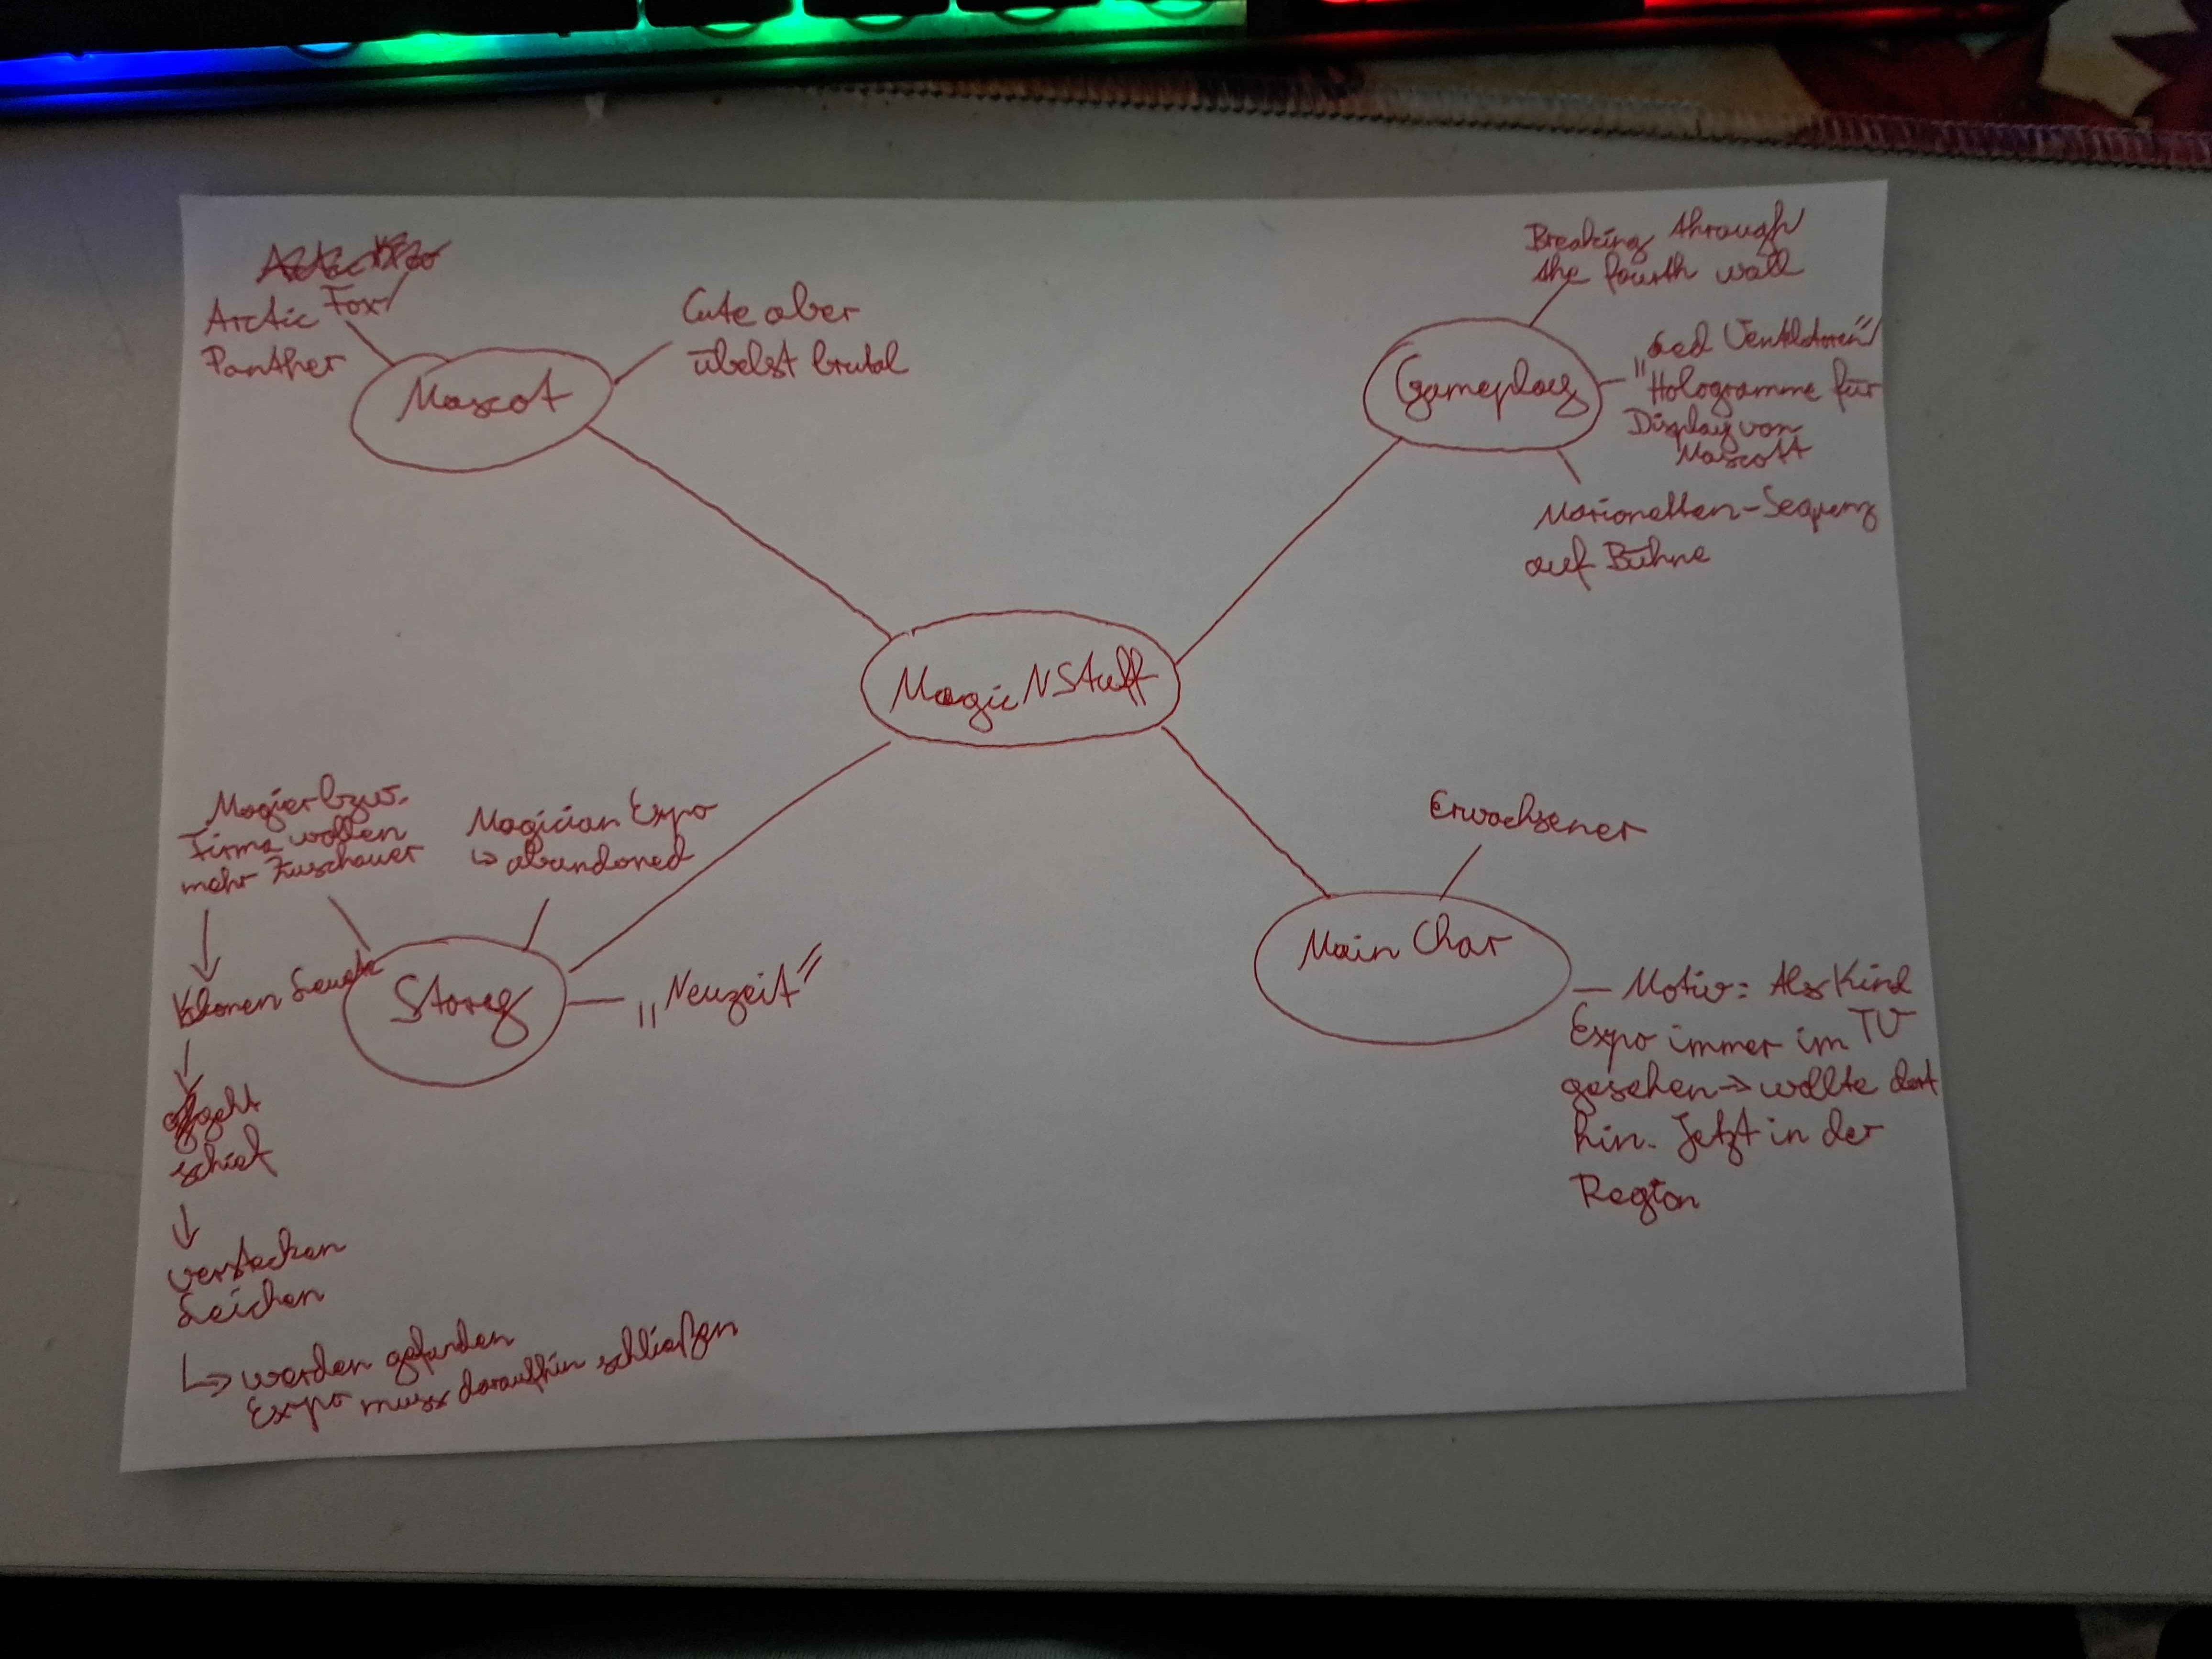 Arctic Fox/
Panther
Cute aber
übelst brutal
Mascot
Breaking through
the fourth wall
"Led Ventilatoren"/
Hologramme für
Display von
Mascott
Gameplay
Marionetten-Sequenz
auf Bühne
MagicNStuff
Magier bzw.
Firma wollen
mehr Zuschauer
Magician Expo
↳ abandoned
Klonen Leute
Story
"Neuzeit"
geht
schief
verstecken
Leichen
↳ werden gefunden
Expo muss daraufhin schließen
Erwachsener
Main Char
— Motiv: Als Kind
Expo immer im TV
gesehen → wollte dort
hin. Jetzt in der
Region